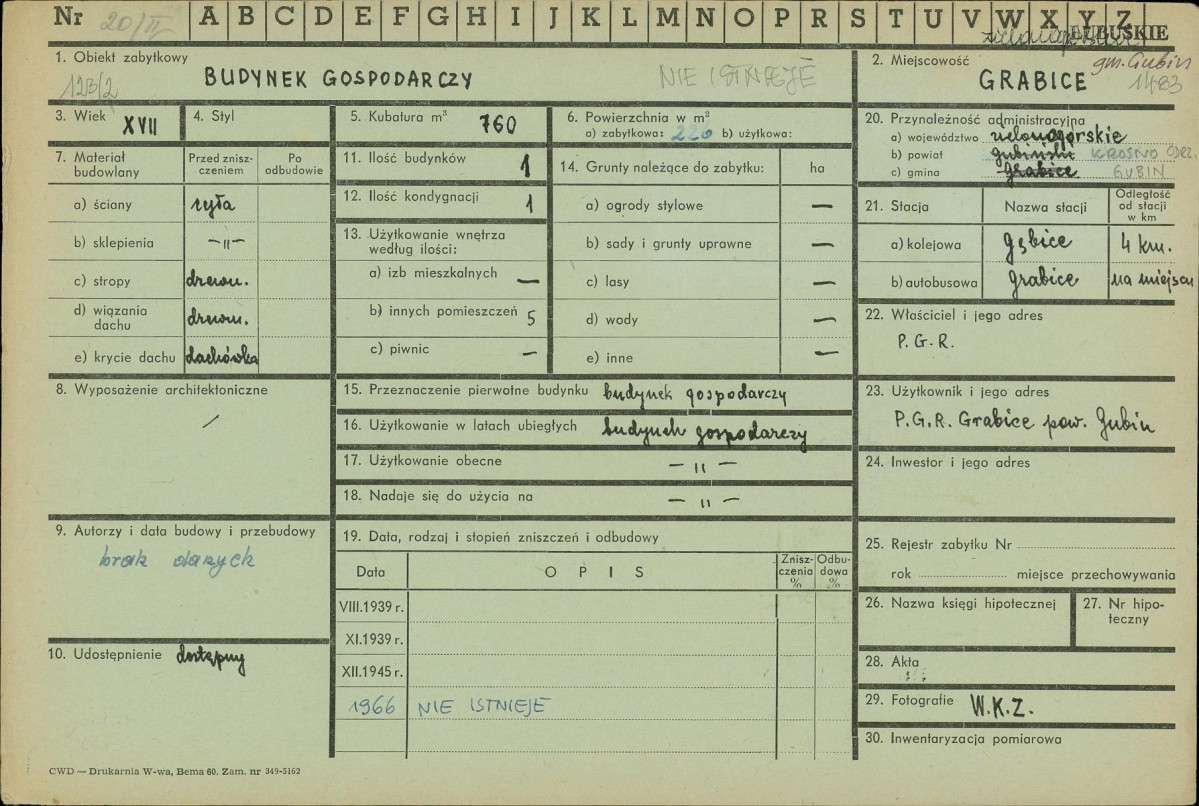 Nr 20/II A B C D E F G H I J K L M N O P R S T U V W X Y Z
LUBUSKIE
1. Obiekt zabytkowy
123/2
BUDYNEK GOSPODARCZY
NIE ISTNIEJE
2. Miejscowość
gm. Gubin
GRABICE
1483
3. Wiek XVII
4. Styl
5. Kubatura m³ 760
6. Powierzchnia w m²
a) zabytkowa: 220 b) użytkowa:
20. Przynależność administracyjna
a) województwo zielonogórskie
b) powiat gubiński KROSNO ODRZ.
c) gmina Grabice GUBIN
7. Materiał budowlany
Przed znisz-
czeniem
Po
odbudowie
a) ściany cegła
b) sklepienia —"—
c) stropy drewn.
d) wiązania
dachu drewn.
e) krycie dachu dachówka
11. Ilość budynków 1
12. Ilość kondygnacji 1
13. Użytkowanie wnętrza
według ilości:
a) izb mieszkalnych —
b) innych pomieszczeń 5
c) piwnic —
14. Grunty należące do zabytku: ha
a) ogrody stylowe —
b) sady i grunty uprawne —
c) lasy —
d) wody —
e) inne —
21. Stacja
Nazwa stacji
Odległość
od stacji
w km
a) kolejowa Gębice 4 km.
b) autobusowa Grabice na miejscu
22. Właściciel i jego adres
P.G.R.
8. Wyposażenie architektoniczne
/
15. Przeznaczenie pierwotne budynku budynek gospodarczy
16. Użytkowanie w latach ubiegłych budynek gospodarczy
17. Użytkowanie obecne —"—
18. Nadaje się do użycia na —"—
23. Użytkownik i jego adres
P.G.R. Grabice pow. Gubin
24. Inwestor i jego adres
9. Autorzy i data budowy i przebudowy
brak danych
10. Udostępnienie dostępny
19. Data, rodzaj i stopień zniszczeń i odbudowy
Data
O P I S
Znisz-
czenia
%
Odbu-
dowa
%
VIII.1939 r.
XI.1939 r.
XII.1945 r.
1966 NIE ISTNIEJE
25. Rejestr zabytku Nr
rok miejsce przechowywania
26. Nazwa księgi hipotecznej
27. Nr hipo-
teczny
28. Akta
29. Fotografie W.K.Z.
30. Inwentaryzacja pomiarowa
CWD — Drukarnia W-wa, Bema 60. Zam. nr 349-5162